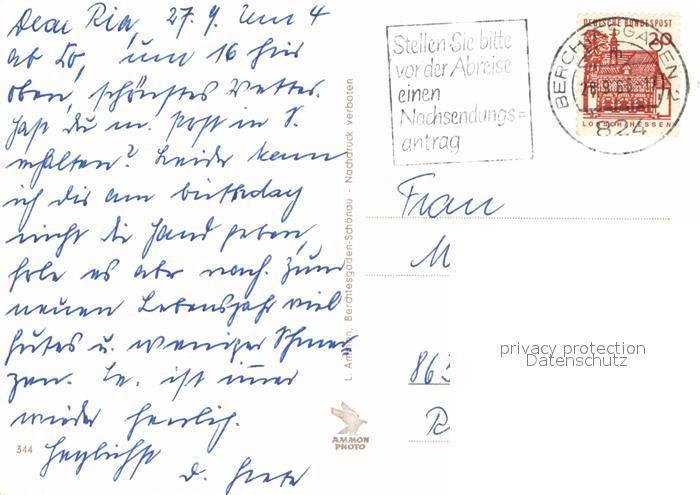 Dear Ria, 27.9. Um 4
ab Lo, um 16 hier
oben, schönstes Wetter.
Hast du m. Post in S.
erhalten? Leider kann
ich dir am birthday
nicht die Hand geben,
hole es aber nach. Zum
neuen Lebensjahr viel
Gutes u. weniger Schmer-
zen. Es ist immer
wieder herrlich.
Herzlichst
d. Grete
344
L. Ammon, Berchtesgaden-Schönau - Nachdruck verboten
AMMON
PHOTO
Stellen Sie bitte
vor der Abreise
einen
Nachsendungs=
antrag
BERCHTESGADEN 2
824
DEUTSCHE BUNDESPOST
20
LORSCH/HESSEN
Frau
M
863
R
privacy protection
Datenschutz